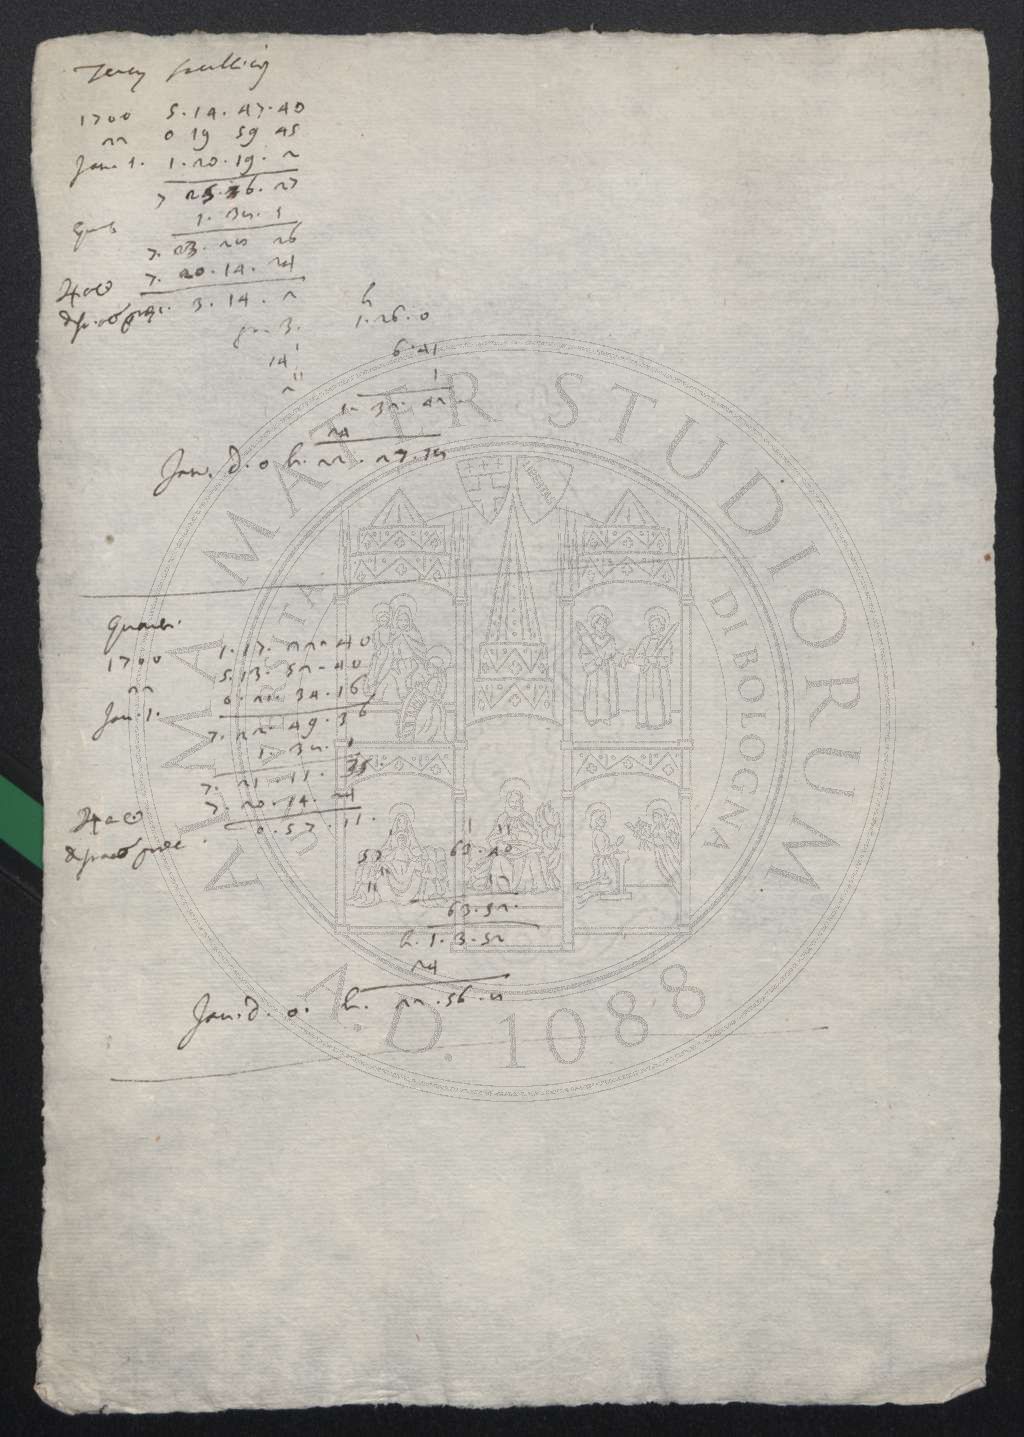 1700 5.14.47.40
22 0 19 59 45
Jan. 1. 1.20.19.2
7 25.6.27
1.38.1
7.23.28 26
♃ a ☉ 7.20.14.24
3.14.2 h
gr. 3. 1.26.0
14' 6.41
2'' 1
1.32.42
24
Jan. d. 0 h. 22.27.18
Quarti. 1.17.22.40
1700 5.13.52.40
22 0.21.34.16
Jan. 1. 7.22.49.36
1.38.1
7.21.11.35
♃ a ☉ 7.20.14.24
0.57.11.
57' 63'.40''
11'' 12
63.52.
h. 1.3.52
24
Jan. d. 0. h. 22.56.8
ALMA MATER STUDIORUM
UNIVERSITÀ DI BOLOGNA
LIBERTAS
A.D. 1088